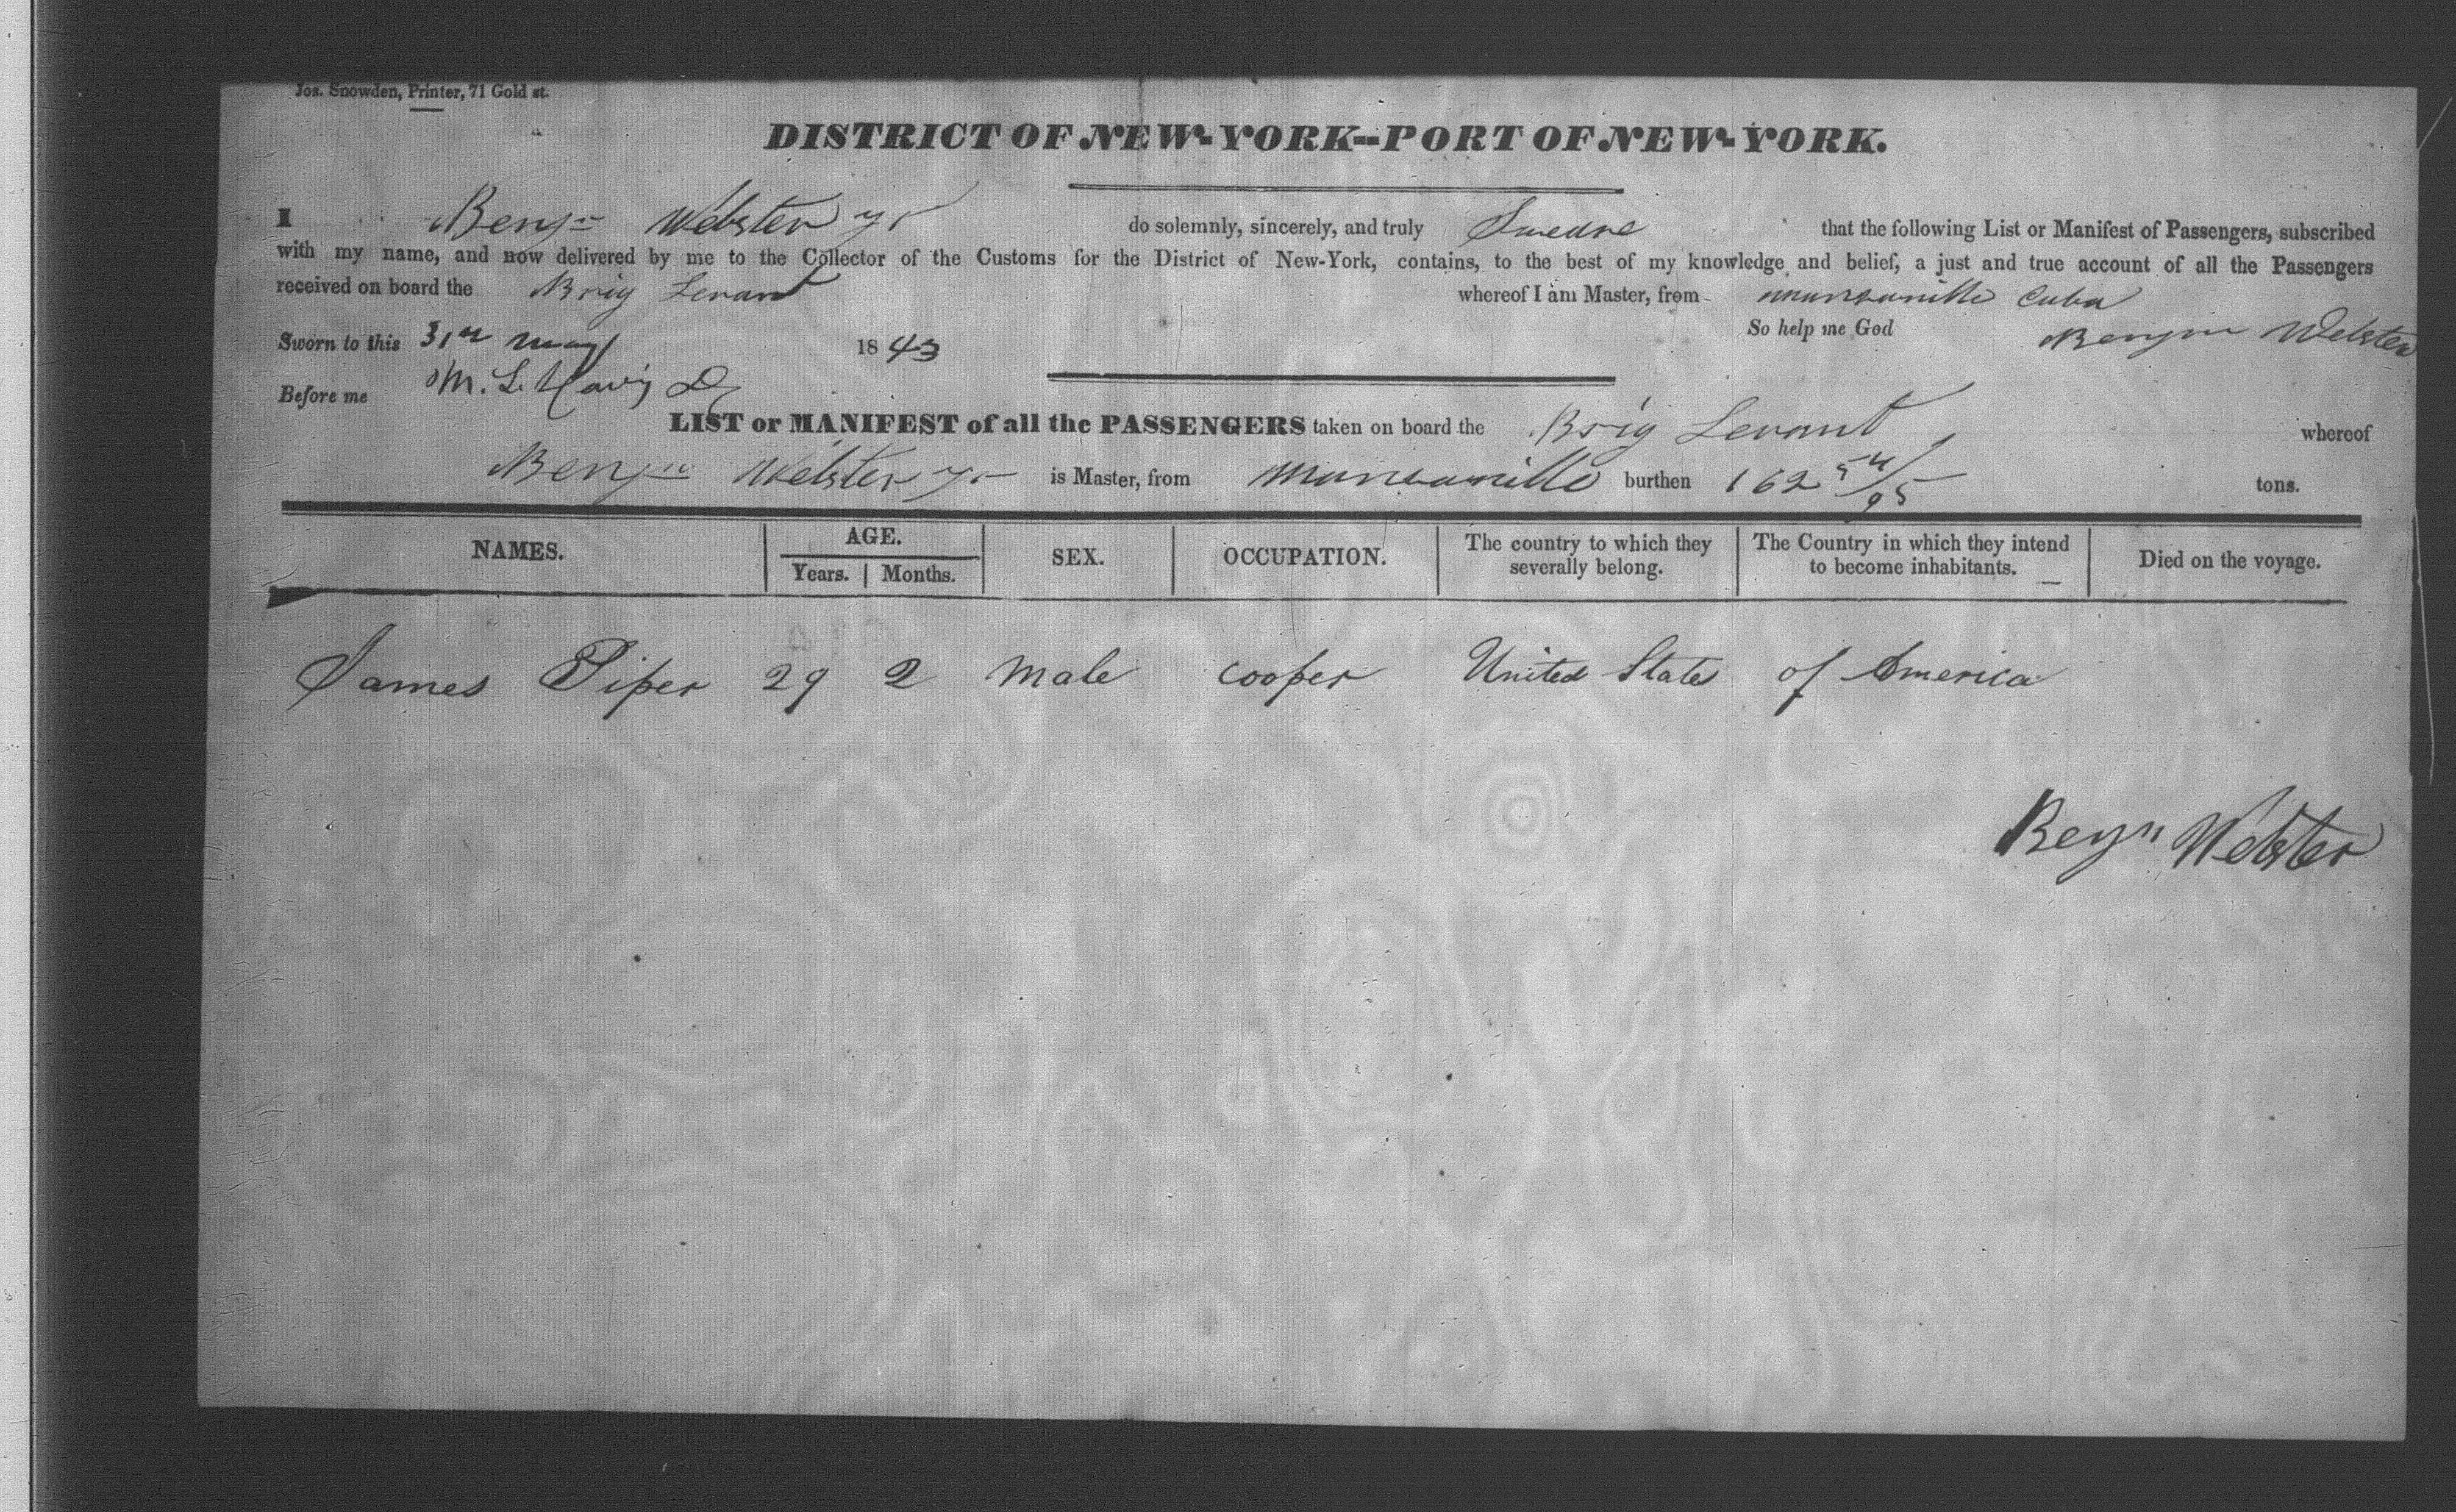 Jos. Snowden, Printer, 71 Gold st.
DISTRICT OF NEW-YORK--PORT OF NEW-YORK.
I Benjn Webster Jr do solemnly, sincerely, and truly Sweare that the following List or Manifest of Passengers, subscribed
with my name, and now delivered by me to the Collector of the Customs for the District of New-York, contains, to the best of my knowledge and belief, a just and true account of all the Passengers
received on board the Brig Levant whereof I am Master, from Mansanillo Cuba
Sworn to this 31st May 1843 So help me God Benjn Webster
Before me M. L.
LIST or MANIFEST of all the PASSENGERS taken on board the Brig Levant whereof
Benjn Webster Jr is Master, from Mansanillo burthen 162 54/95 tons.
NAMES. AGE. SEX. OCCUPATION. The country to which they severally belong. The Country in which they intend to become inhabitants. Died on the voyage.
Years. Months.
James Piper 29 2 Male Cooper United States of America
Benjn Webster